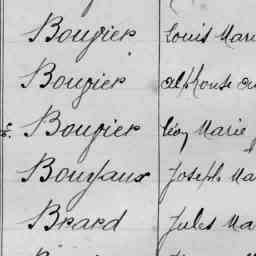 Bougier Louis Mari
Bougier Alphonse
Bougier Léon Marie
Bouyaux Joseph Ma
Brard Jules Ma